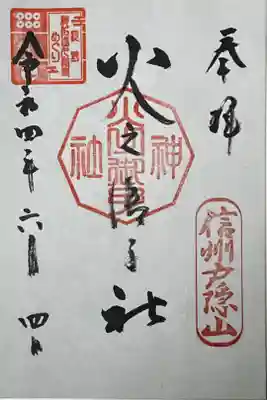 奉拝
信州戸隠山
火之御子社
神社
令和四年六月四日